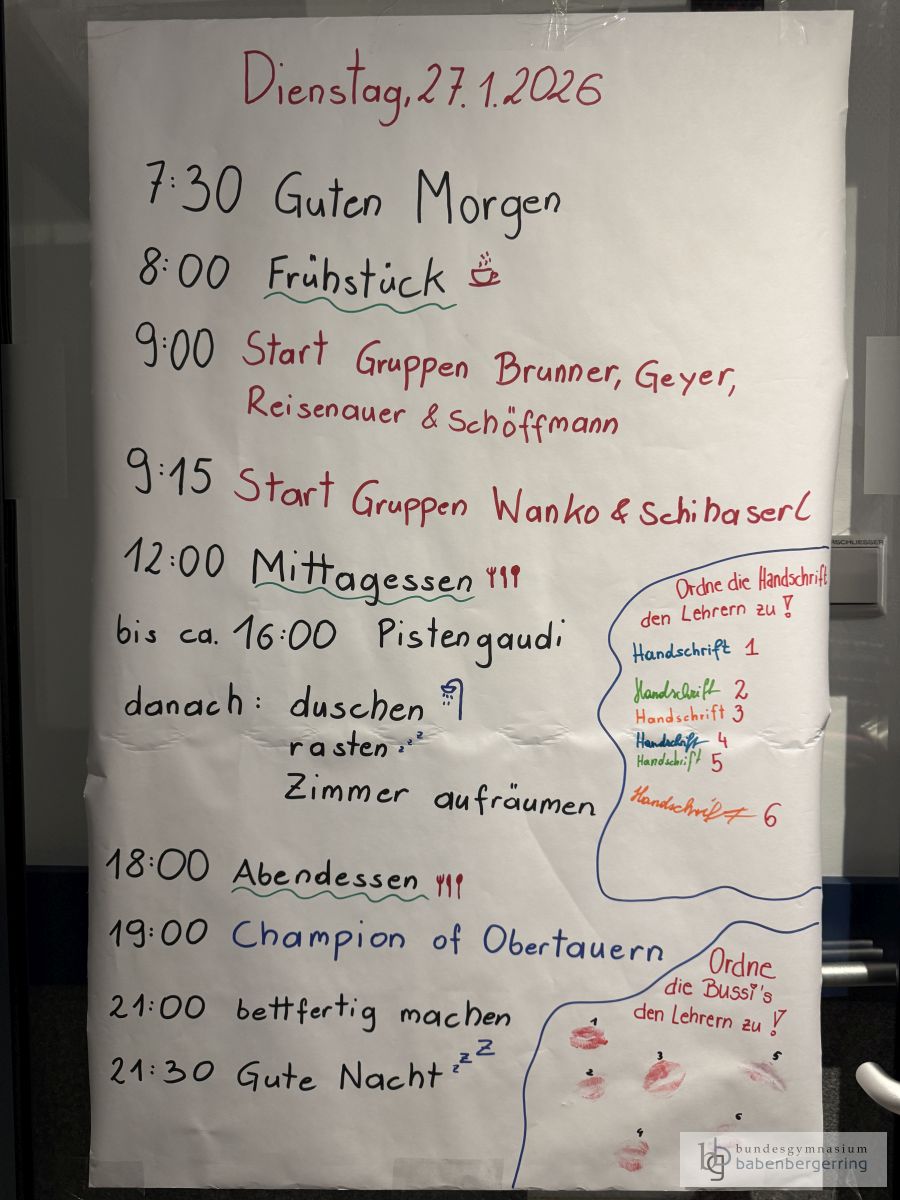 Dienstag, 27.1.2026
7:30 Guten Morgen
8:00 Frühstück
9:00 Start Gruppen Brunner, Geyer,
Reisenauer & Schöffmann
9:15 Start Gruppen Wanko & Schihaserl
12:00 Mittagessen
bis ca. 16:00 Pistengaudi
danach: duschen
rasten zzz
Zimmer aufräumen
18:00 Abendessen
19:00 Champion of Obertauern
21:00 bettfertig machen
21:30 Gute Nacht zzZ
Ordne die Handschrift
den Lehrern zu!
Handschrift 1
Handschrift 2
Handschrift 3
Handschrift 4
Handschrift 5
Handschrift 6
Ordne
die Bussi's
den Lehrern zu!
1
2
3
5
4
6
SCHLIESSER
bg bundesgymnasium
babenbergerring